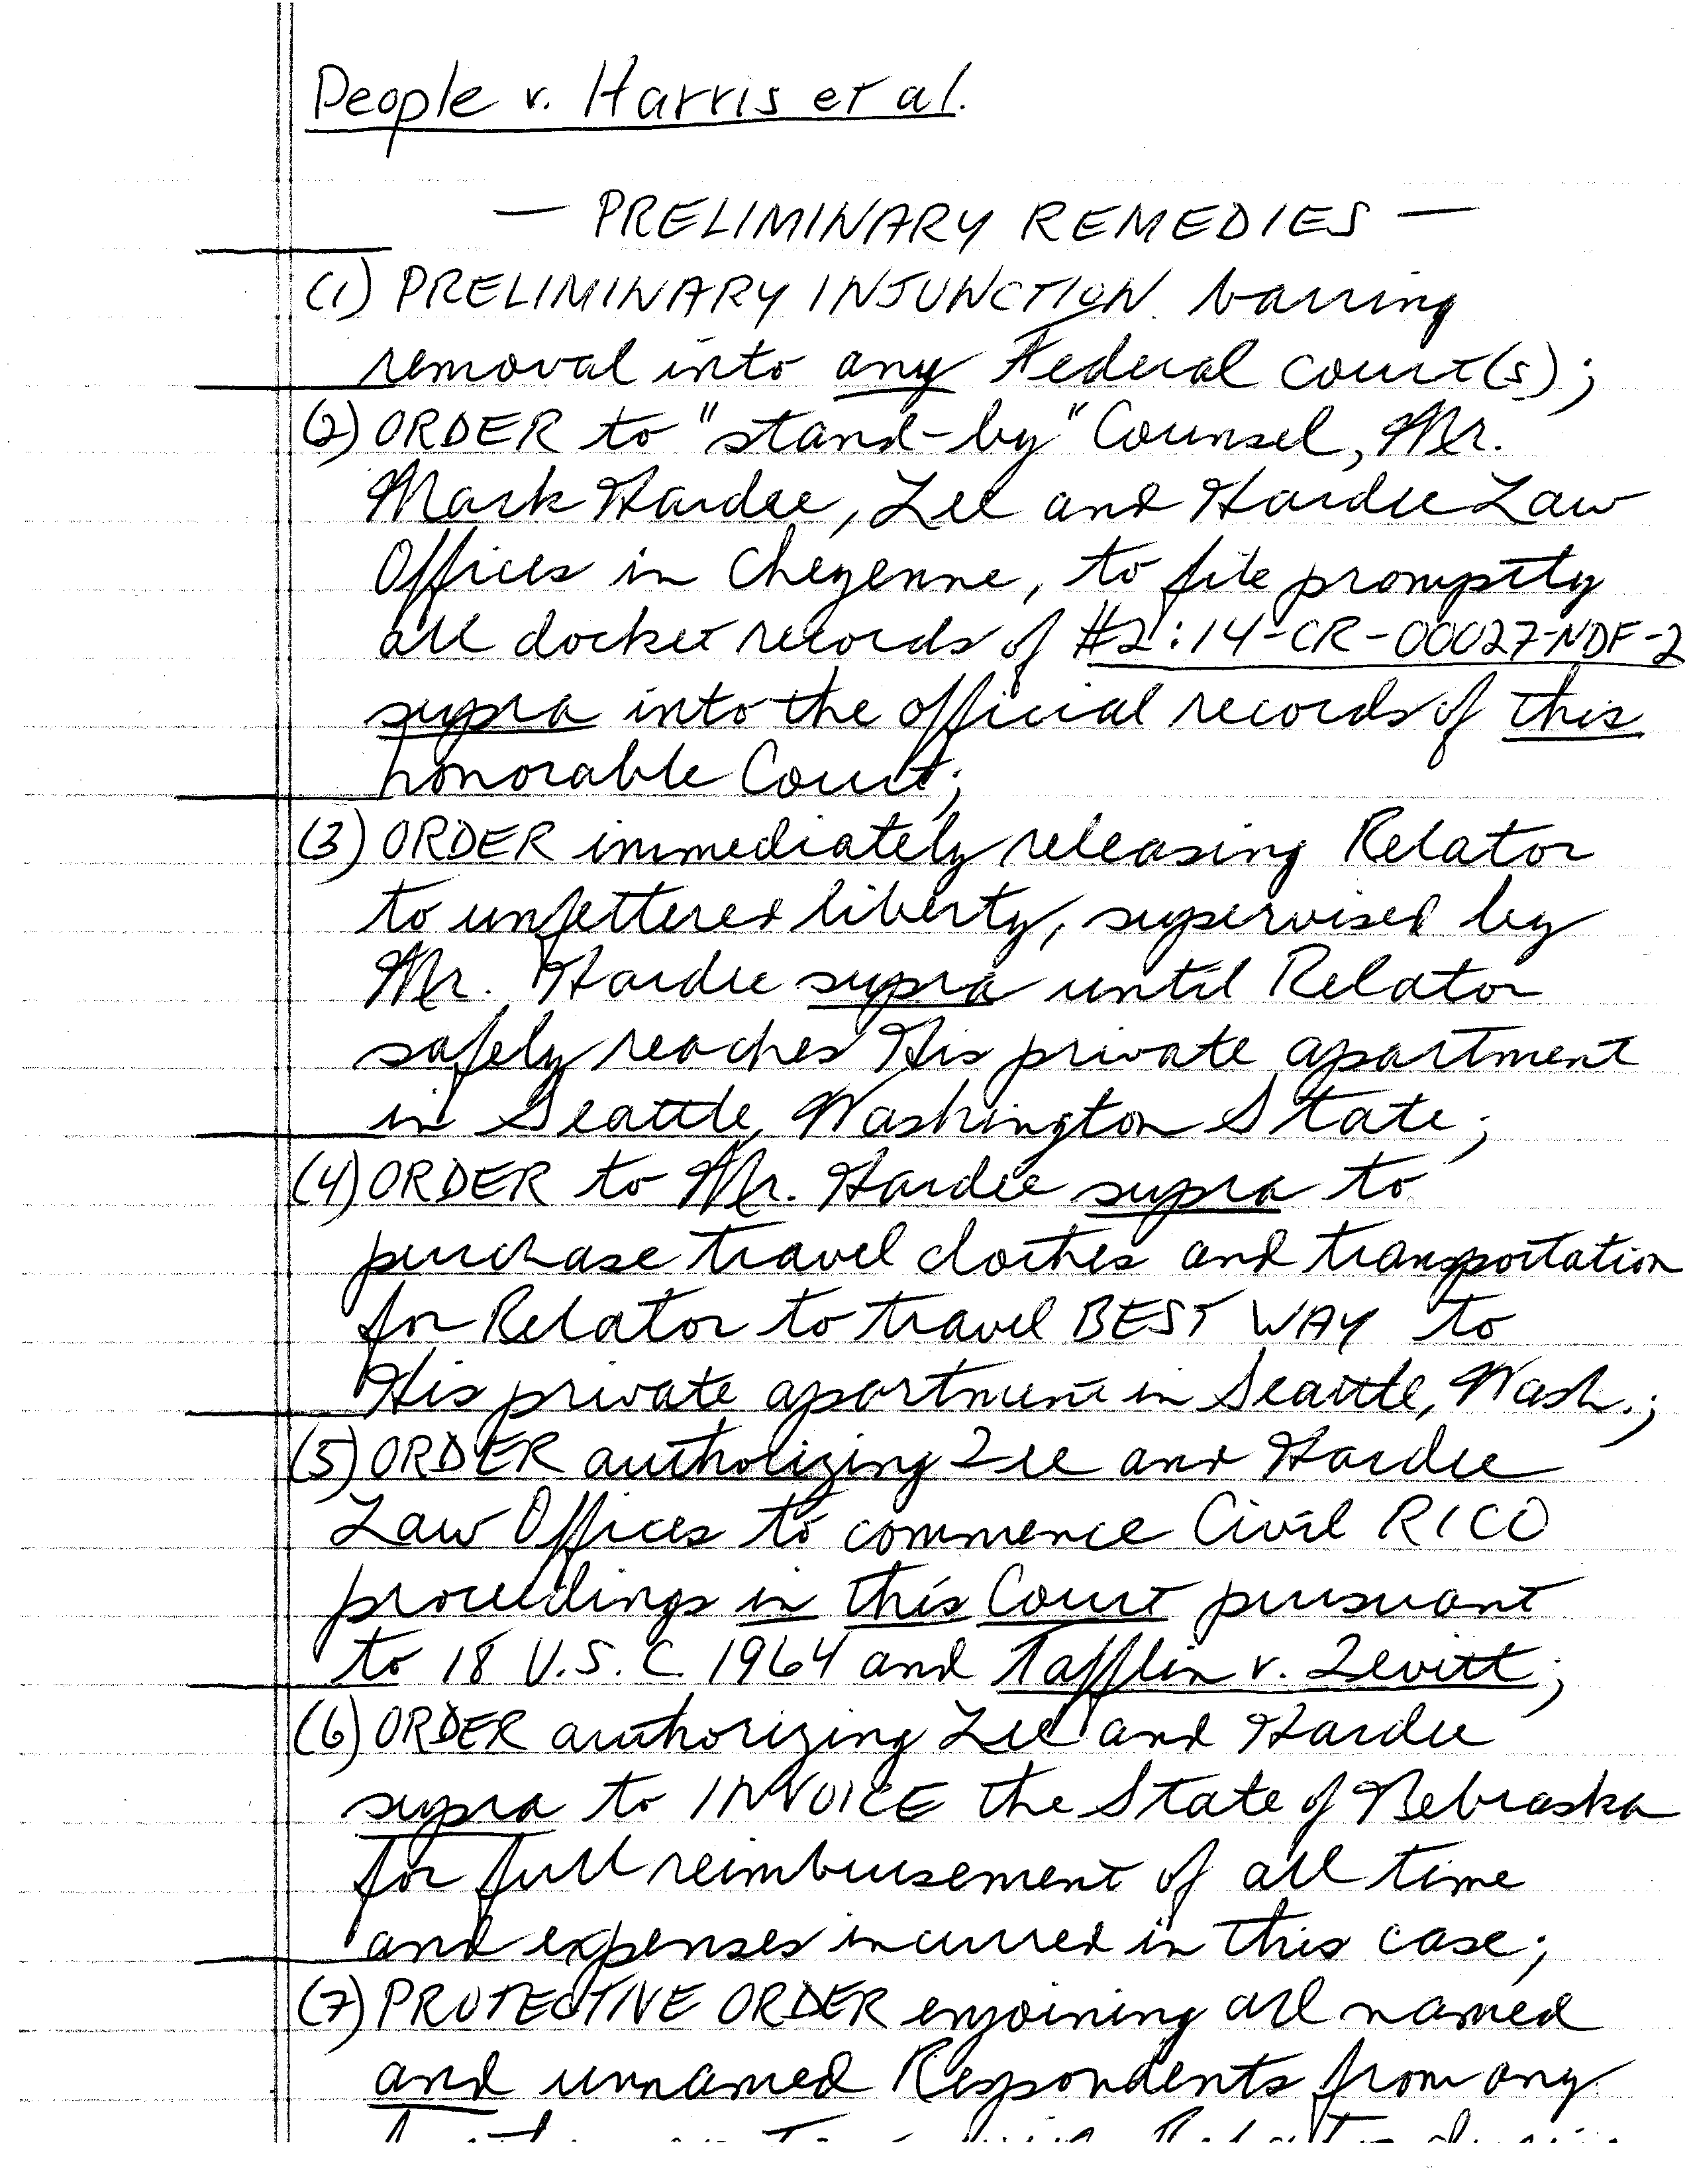 People v. Harris et al.
— PRELIMINARY REMEDIES —
(1) PRELIMINARY INJUNCTION barring
removal into any Federal court(s);
(2) ORDER to "stand-by" Counsel, Mr.
Mark Hardee, Lee and Hardee Law
Offices in Cheyenne, to file promptly
all docket records of #2:14-CR-00027-NDF-2
supra into the official records of this
honorable Court;
(3) ORDER immediately releasing Relator
to unfettered liberty, supervised by
Mr. Hardee supra until Relator
safely reaches His private apartment
in Seattle, Washington State;
(4) ORDER to Mr. Hardee supra to
purchase travel clothes and transportation
for Relator to travel BEST WAY to
His private apartment in Seattle, Wash.;
(5) ORDER authorizing Lee and Hardee
Law Offices to commence Civil RICO
proceedings in this Court pursuant
to 18 U.S.C. 1964 and Tafflin v. Levitt;
(6) ORDER authorizing Lee and Hardee
supra to INVOICE the State of Nebraska
for full reimbursement of all time
and expenses incurred in this case;
(7) PROTECTIVE ORDER enjoining all named
and unnamed Respondents from any